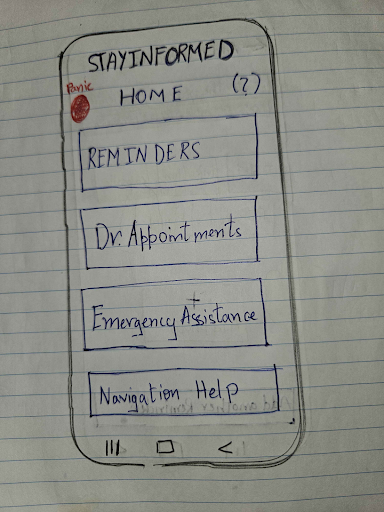 STAYINFORMED
Panic
HOME (?)
REMINDERS
Dr. Appointments
Emergency Assistance
Navigation Help